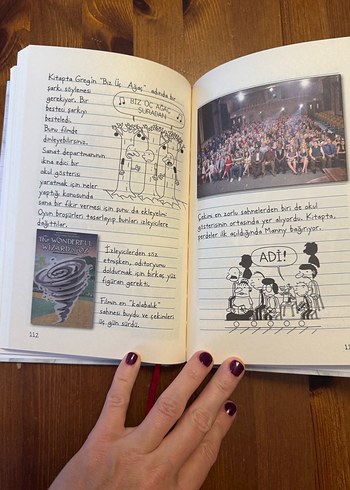 Kitapta Greg'in "Biz Üç Ağaç" adında bir
şarkı söylemesi
gerekiyor. Bir
besteci şarkıyı
besteledi.
Bunu filmde
dinleyebilirsiniz.
Sanat departmanının
ikna edici bir
okul gösterisi
yaratmak için neler
yaptığı konusunda
sana bir fikir vermesi için şunu da ekleyelim:
Oyun broşürleri tasarlayıp bunları izleyicilere
dağıttılar.
BİZ ÜÇ AĞAÇ
ŞURADAN
THE WONDERFUL
WIZARD OF OZ
İzleyicilerden söz
etmişken, oditoryumu
doldurmak için birkaç yüz
figüran gerekti.
Filmin en "kalabalık"
sahnesi buydu ve çekimleri
üç gün sürdü.
112
Çekimi en zorlu sahnelerden biri de okul
gösterisinin ortasında yer alıyordu. Kitapta,
perdeler ilk açıldığında Manny bağırıyor.
ADİ!